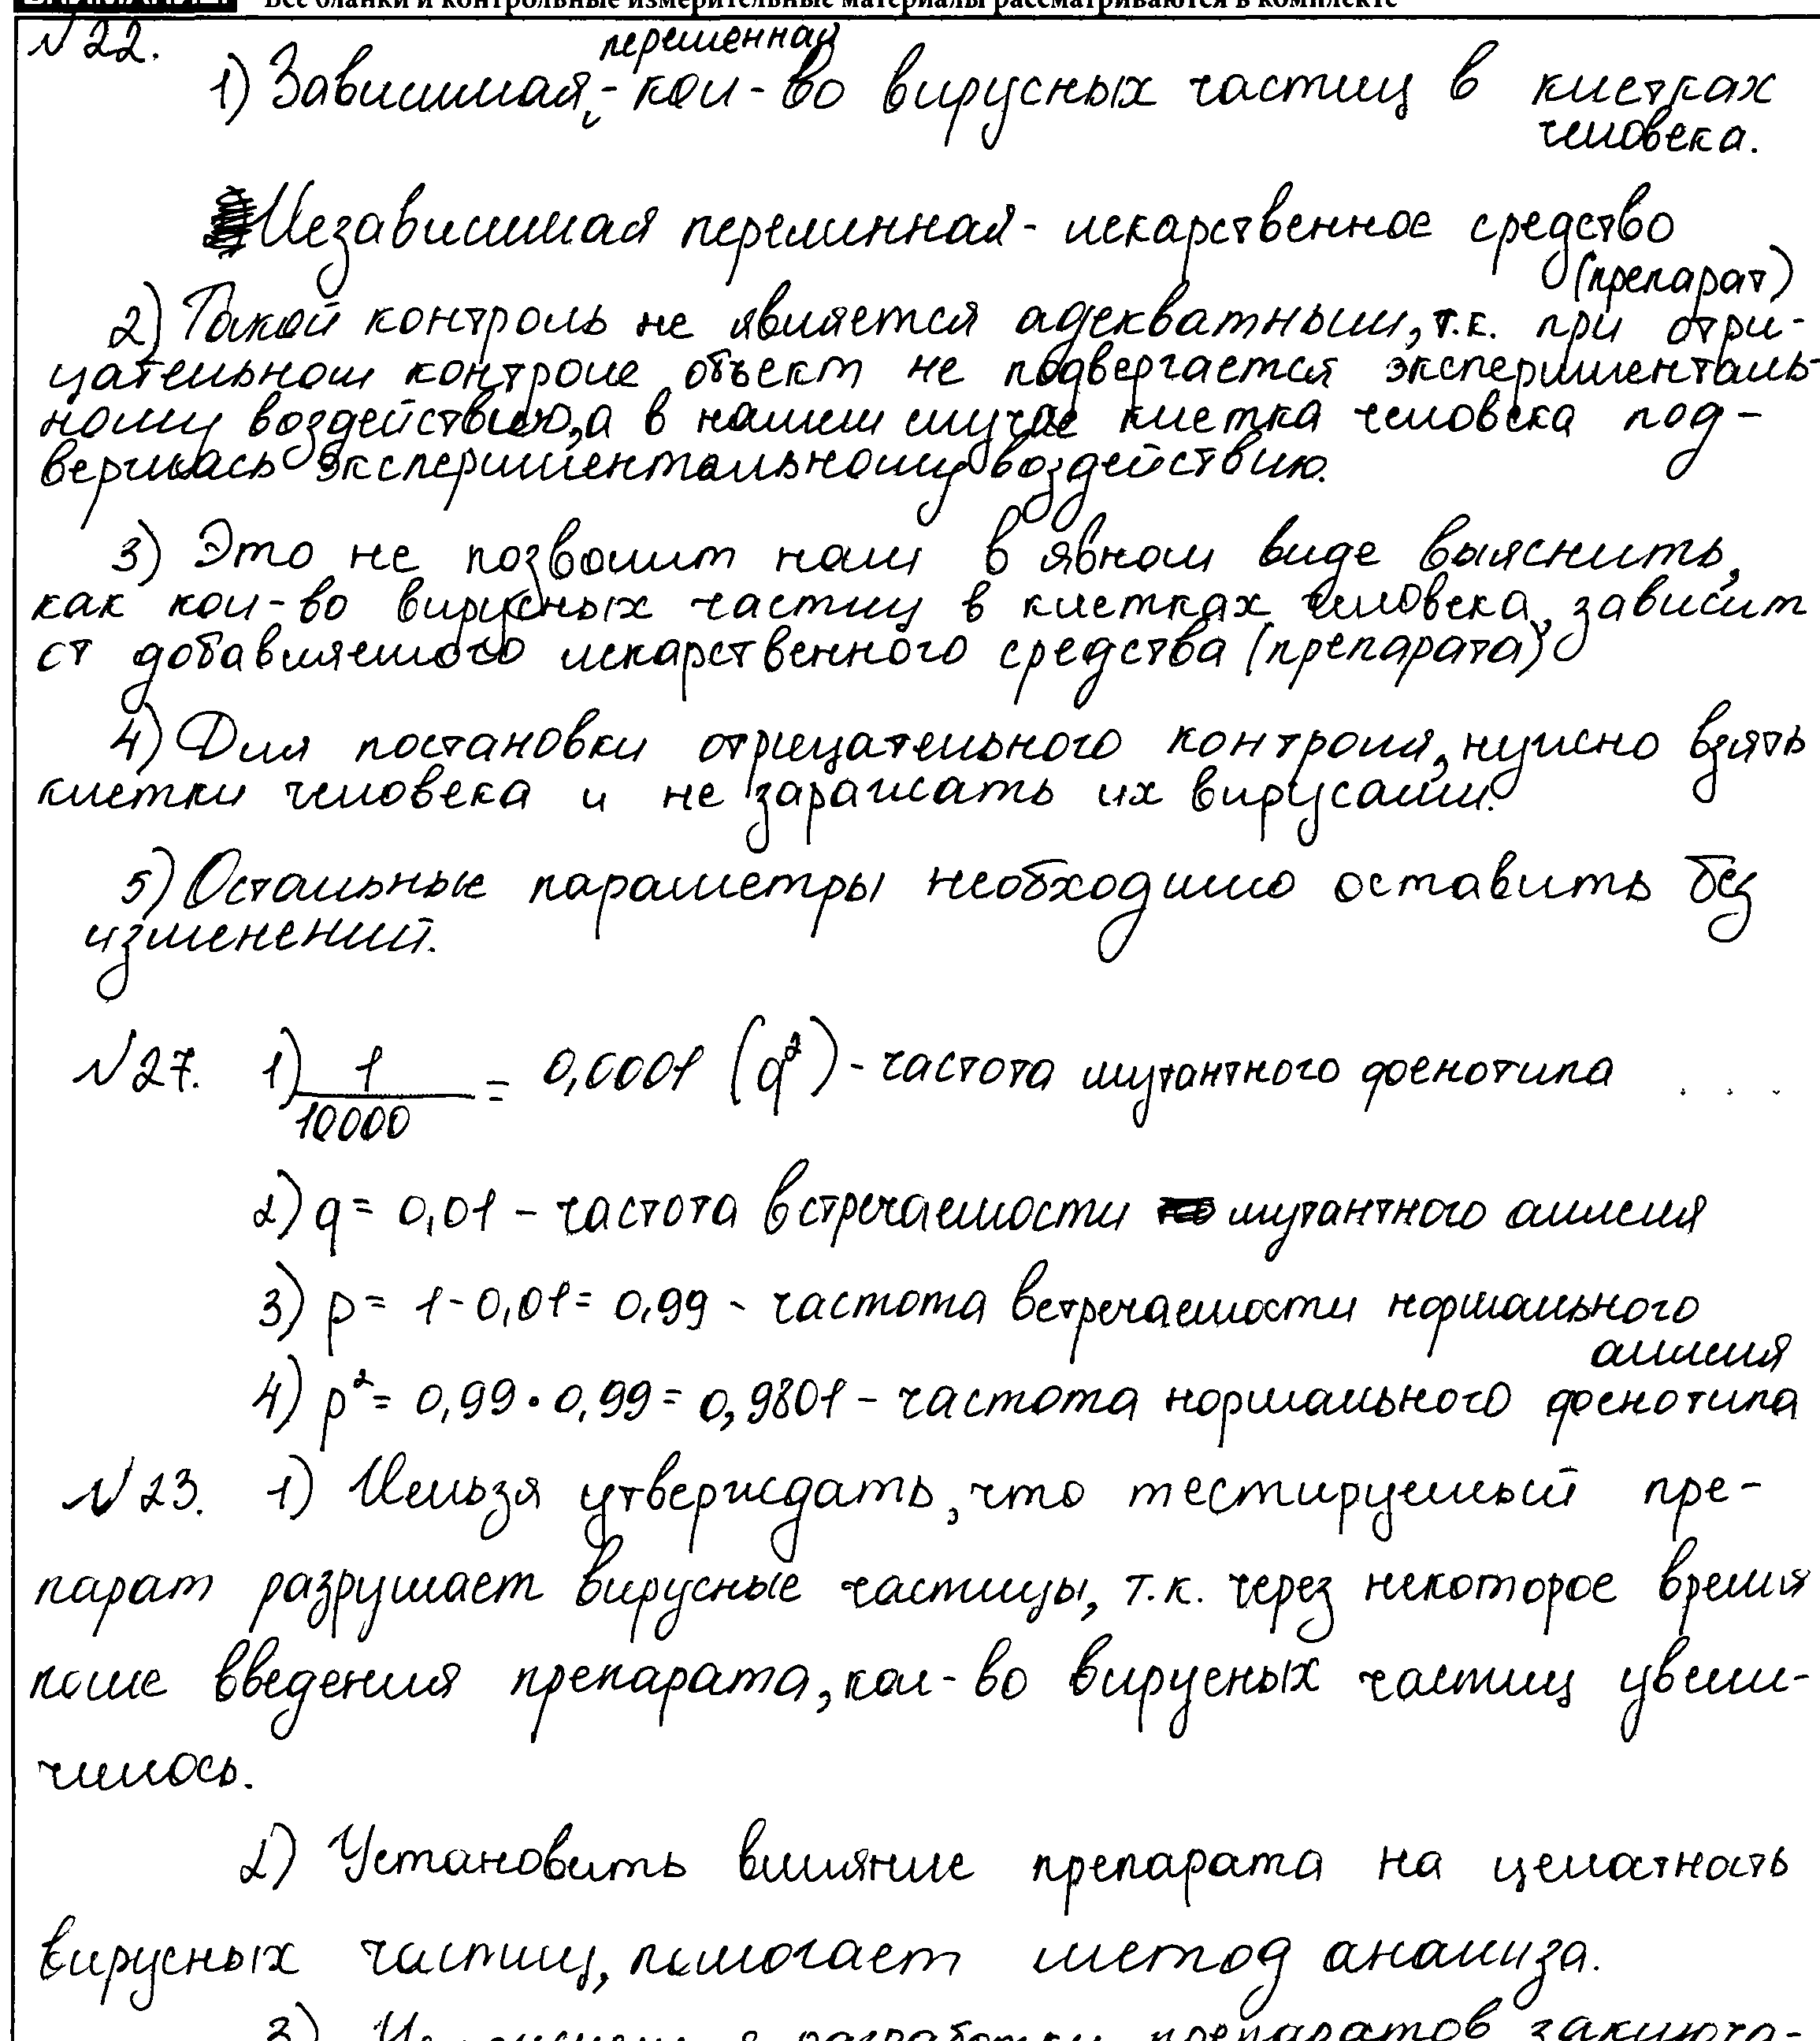 Все бланки и контрольные измерительные материалы рассматриваются в комплекте
№22.
переменная
1) Зависимая - кол-во вирусных частиц в клетках
человека.
Независимая переменная - лекарственное средство
(препарат)
2) Такой контроль не является адекватным, т.к. при отри-
цательном контроле объект не подвергается эксперименталь-
ному воздействию, а в нашем случае клетка человека под-
верглась экспериментальному воздействию.
3) Это не позволит нам в явном виде выяснить,
как кол-во вирусных частиц в клетках человека, зависит
от добавляемого лекарственного средства (препарата)
4) Для постановки отрицательного контроля, нужно взять
клетки человека и не заражать их вирусами.
5) Остальные параметры необходимо оставить без
изменений.
№27. 1) 1/10000 = 0,0001 (q²) - частота мутантного фенотипа
2) q = 0,01 - частота встречаемости мутантного аллеля
3) p = 1 - 0,01 = 0,99 - частота встречаемости нормального
аллеля
4) p² = 0,99 • 0,99 = 0,9801 - частота нормального фенотипа
№23. 1) Нельзя утверждать, что тестируемый пре-
парат разрушает вирусные частицы, т.к. через некоторое время
после введения препарата, кол-во вирусных частиц увели-
чилось.
2) Установить влияние препарата на целостность
вирусных частиц, помогает метод анализа.
3) разработки препаратов заключа-